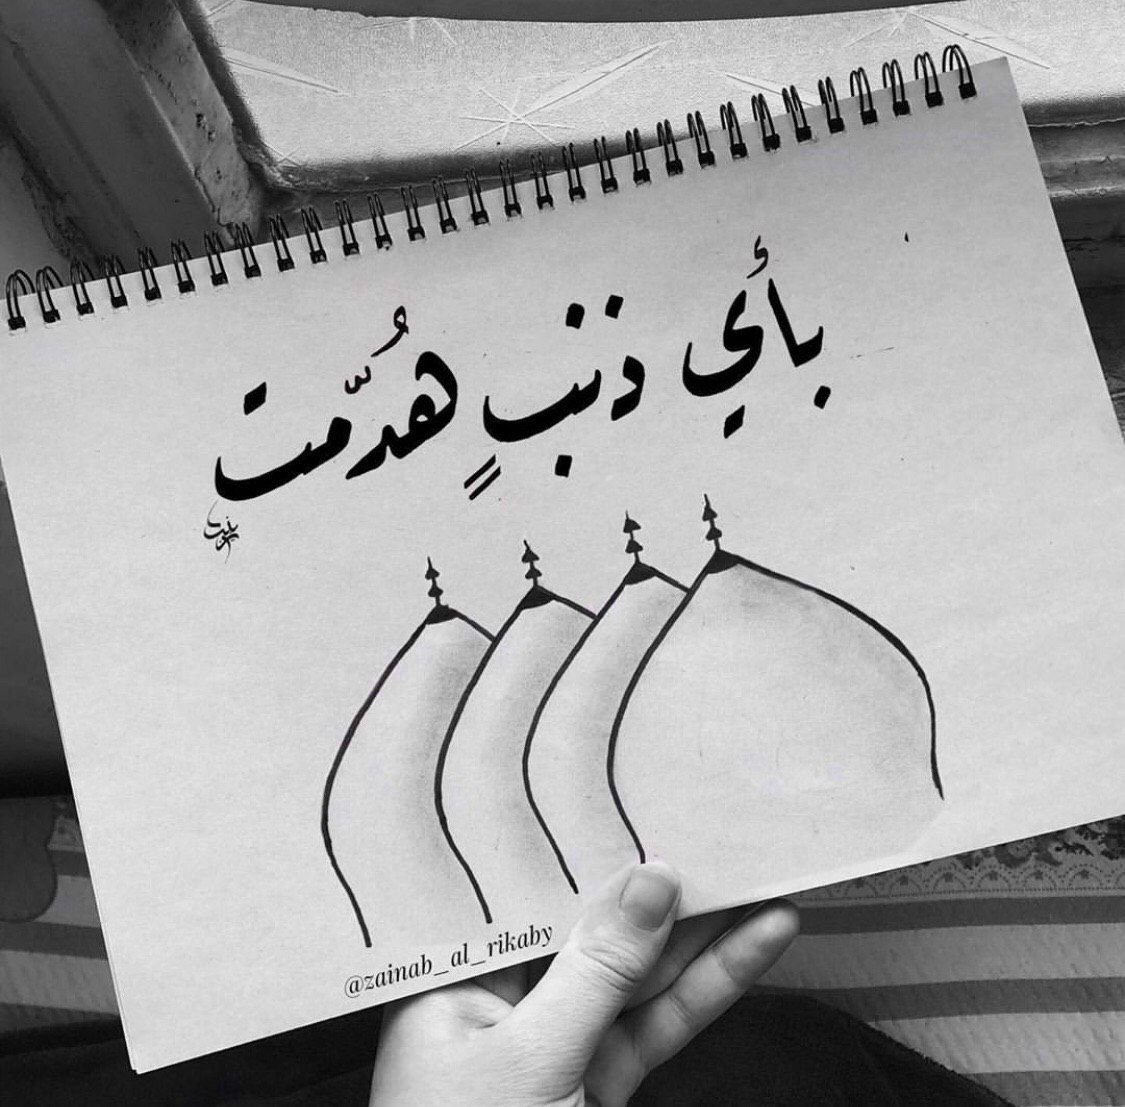 بأي ذنبٍ هُدّمت
زينب
@zainab_al_rikaby